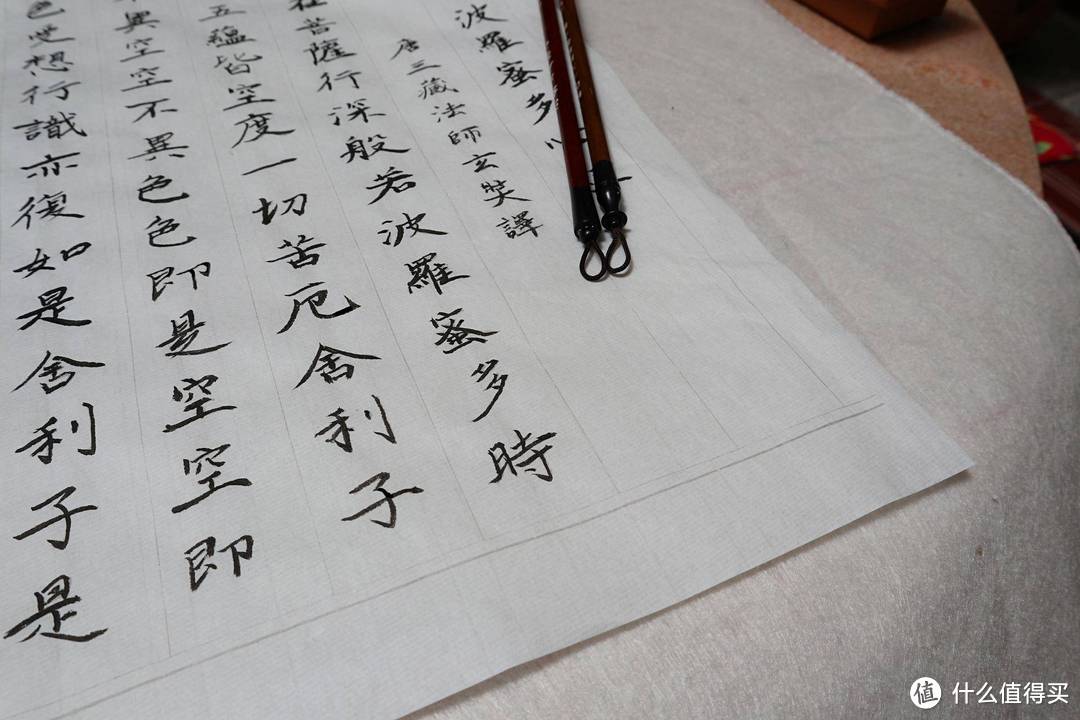 波羅蜜多心
唐三藏法師玄奘譯
在菩薩行深般若波羅蜜多時
五蘊皆空度一切苦厄舍利子
異空空不異色色即是空空即
色受想行識亦復如是舍利子是
值 什么值得买